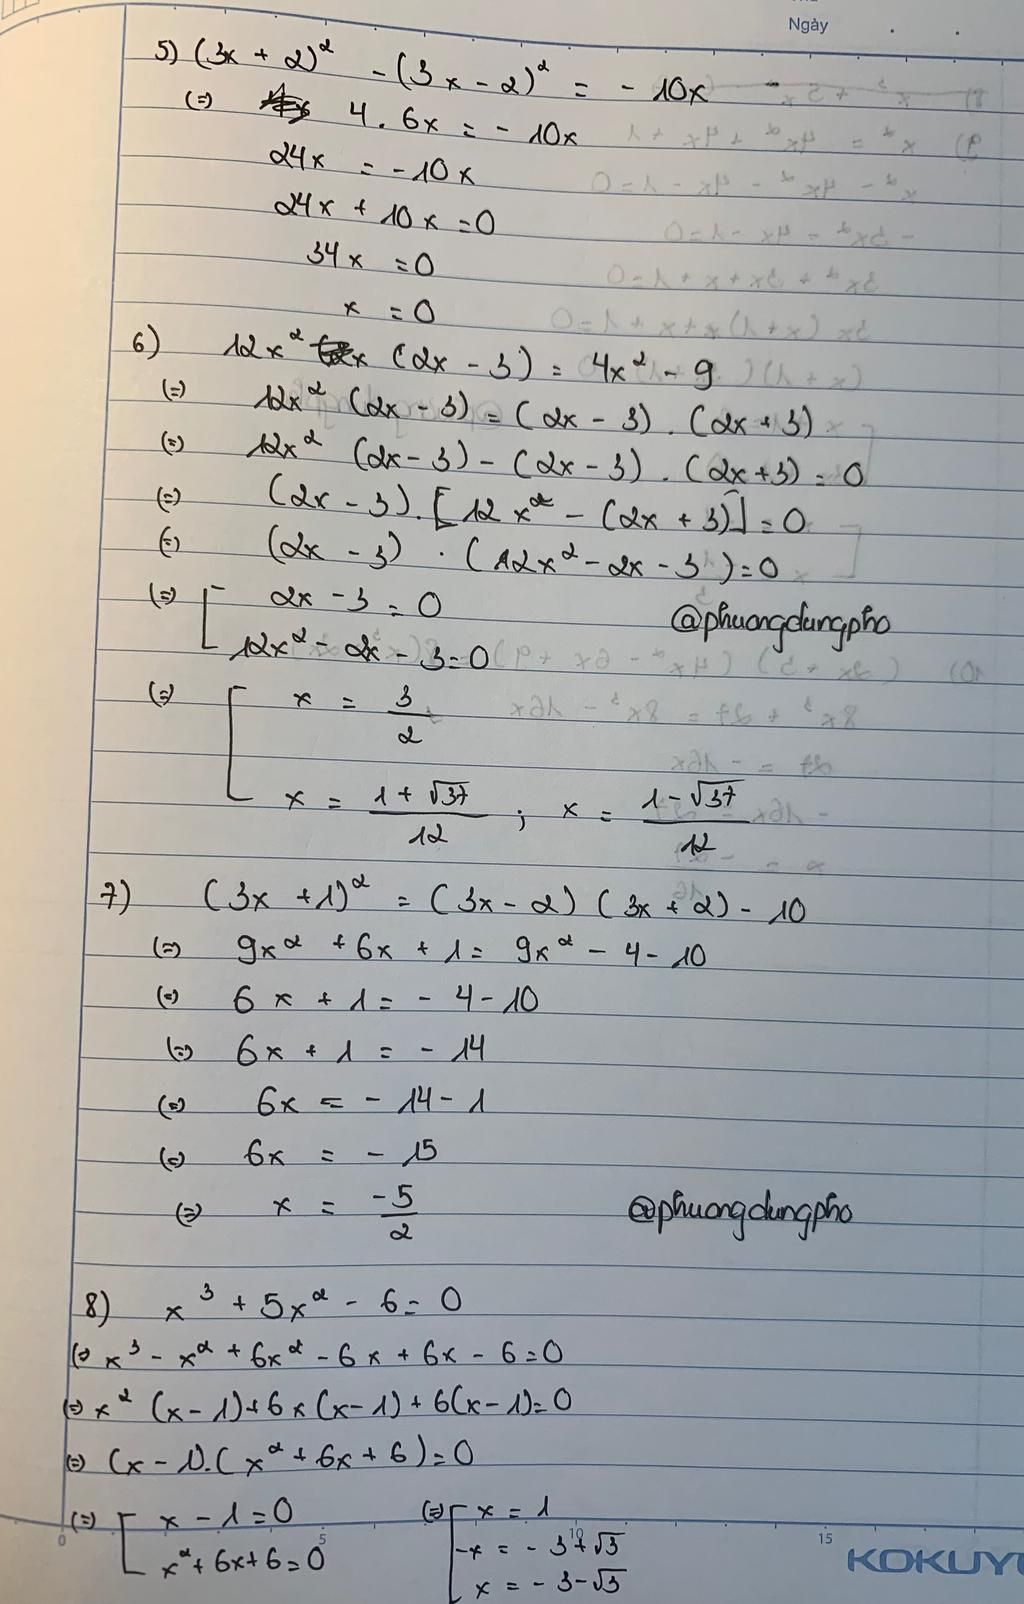 Ngày
5) (3x + 2)² - (3x - 2)² = - 10x
(=) 4 . 6x = - 10x
24x = - 10x
24x + 10x = 0
34x = 0
x = 0
6) 12x² (2x - 3) = 4x² - 9
(=) 12x² (2x - 3) = (2x - 3) . (2x + 3)
(=) 12x² (2x - 3) - (2x - 3) . (2x + 3) = 0
(=) (2x - 3) . [12x² - (2x + 3)] = 0
(=) (2x - 3) . (12x² - 2x - 3) = 0
(=) [ 2x - 3 = 0
@phuongdungpho
12x² - 2x - 3 = 0
(=) [ x = 3/2
x = (1 + √37)/12 ; x = (1 - √37)/12
7) (3x + 1)² = (3x - 2) (3x + 2) - 10
(=) 9x² + 6x + 1 = 9x² - 4 - 10
(=) 6x + 1 = - 4 - 10
(=) 6x + 1 = - 14
(=) 6x = - 14 - 1
(=) 6x = - 15
(=) x = -5/2
@phuongdungpho
8) x³ + 5x² - 6 = 0
(=) x³ - x² + 6x² - 6x + 6x - 6 = 0
(=) x² (x - 1) + 6x (x - 1) + 6(x - 1) = 0
(=) (x - 1) . (x² + 6x + 6) = 0
(=) [ x - 1 = 0 (=) [ x = 1
x² + 6x + 6 = 0 x = - 3 + √3
x = - 3 - √3
0 5 10 15
KOKUYO